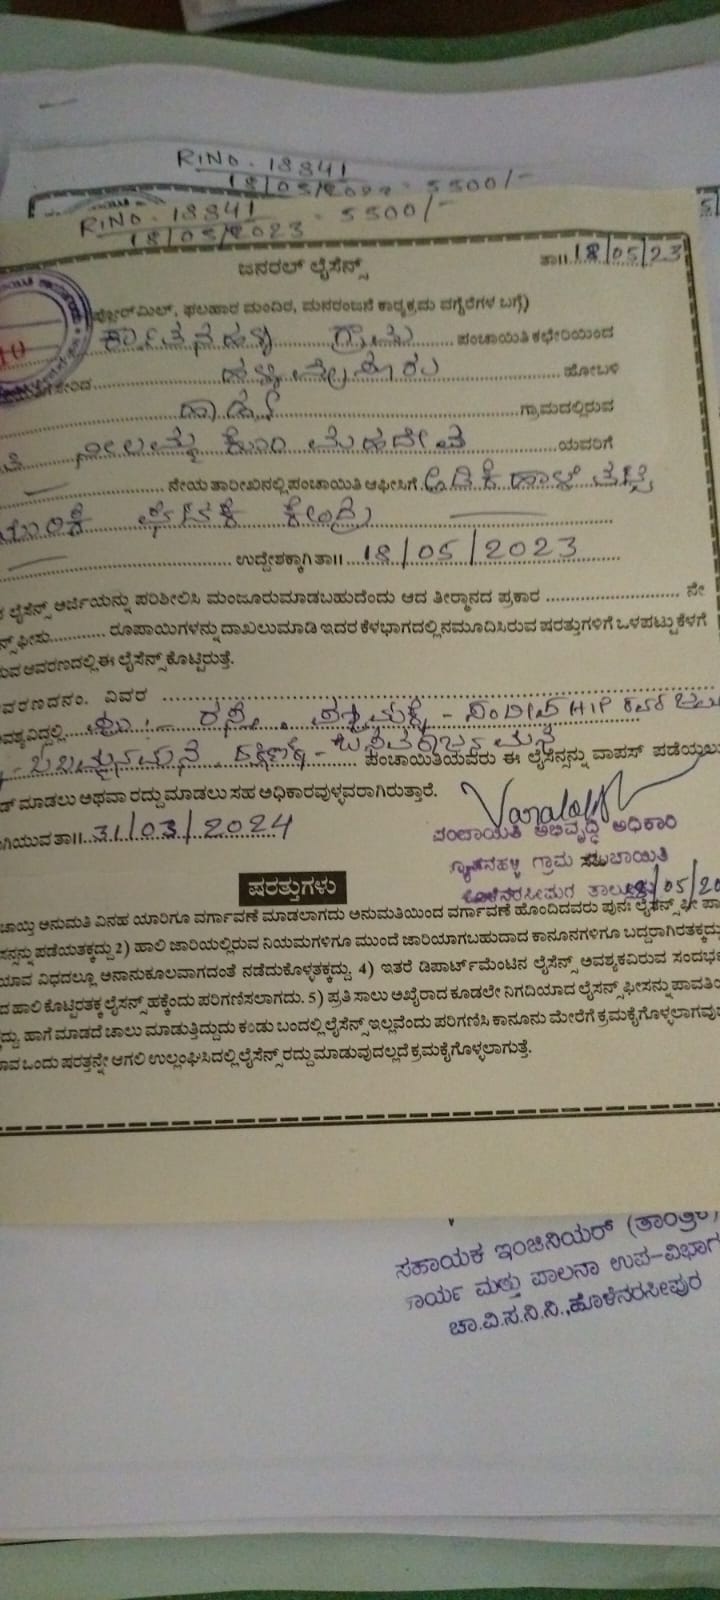 R1NO. 18841
18/05/2023 - 5500/-
R1NO. 18841
18/05/2023 - 5500/-
ಜನರಲ್ ಲೈಸೆನ್ಸ್
ತಾ॥ 18/05/23
ಫ್ಲೋರ್‌ಮಿಲ್, ಫಲಹಾರ ಮಂದಿರ, ಮನರಂಜನೆ ಕಾರ್ಯಕ್ರಮ ವಗೈರೆಗಳ ಬಗ್ಗೆ)
ಗ್ರಾಮ ಪಂಚಾಯಿತಿ ಕಛೇರಿಯಿಂದ
ಹೋಬಳಿ
ಗ್ರಾಮದಲ್ಲಿರುವ
ನೀಲಮ್ಮ ಕೋಂ ಮಹದೇವ ಯವರಿಗೆ
ನೇಯ ತಾರೀಖಿನಲ್ಲಿ ಪಂಚಾಯಿತಿ ಆಫೀಸಿಗೆ ಅಡಿಕೆ ಹಾಳೆ ತಟ್ಟೆ
ಕೇಂದ್ರ
ಉದ್ದೇಶಕ್ಕಾಗಿ ತಾ॥ 18/05/2023
ಲೈಸೆನ್ಸ್ ಅರ್ಜಿಯನ್ನು ಪರಿಶೀಲಿಸಿ ಮಂಜೂರುಮಾಡಬಹುದೆಂದು ಆದ ತೀರ್ಮಾನದ ಪ್ರಕಾರ ನೇ
ನ್ಸ್ ಫೀಸು ರೂಪಾಯಿಗಳನ್ನು ದಾಖಲುಮಾಡಿ ಇದರ ಕೆಳಭಾಗದಲ್ಲಿ ನಮೂದಿಸಿರುವ ಷರತ್ತುಗಳಿಗೆ ಒಳಪಟ್ಟು ಕೆಳಗೆ
ರುವ ಆವರಣದಲ್ಲಿ ಈ ಲೈಸೆನ್ಸ್ ಕೊಟ್ಟಿರುತ್ತೆ.
ಆವರಣದ ನಂ. ವಿವರ
ವಶ್ಯವಿದ್ದಲ್ಲಿ ಪೂ :- ರಸ್ತೆ, ಪಶ್ಚಿಮಕ್ಕೆ -
ದಕ್ಷಿಣಕ್ಕೆ - ಪಂಚಾಯಿತಿಯವರು ಈ ಲೈಸೆನ್ಸನ್ನು ವಾಪಸ್ ಪಡೆಯಲು
ಡ್ ಮಾಡಲು ಅಥವಾ ರದ್ದು ಮಾಡಲು ಸಹ ಅಧಿಕಾರವುಳ್ಳವರಾಗಿರುತ್ತಾರೆ.
ಗಿಯುವ ತಾ॥ 31/03/2024
ಪಂಚಾಯಿತಿ ಅಭಿವೃದ್ಧಿ ಅಧಿಕಾರಿ
ಗ್ರಾಮ ಪಂಚಾಯಿತಿ
ಹೊಳೆನರಸೀಪುರ ತಾಲ್ಲೂಕು 18/05/20
ಷರತ್ತುಗಳು
ಚಾಯ್ತಿ ಅನುಮತಿ ವಿನಹ ಯಾರಿಗೂ ವರ್ಗಾವಣೆ ಮಾಡಲಾಗದು ಅನುಮತಿಯಿಂದ ವರ್ಗಾವಣೆ ಹೊಂದಿದವರು ಪುನಃ ಲೈಸೆನ್ಸ್ ಫೀ ಪಾ
ಸನ್ನನ್ನು ಪಡೆಯತಕ್ಕದ್ದು 2) ಹಾಲಿ ಜಾರಿಯಲ್ಲಿರುವ ನಿಯಮಗಳಿಗೂ ಮುಂದೆ ಜಾರಿಯಾಗಬಹುದಾದ ಕಾನೂನಗಳಿಗೂ ಬದ್ದರಾಗಿರತಕ್ಕದ್ದು
ಯಾವ ವಿಧದಲ್ಲೂ ಅನಾನುಕೂಲವಾಗದಂತೆ ನಡೆದುಕೊಳ್ಳತಕ್ಕದ್ದು. 4) ಇತರೆ ಡಿಪಾರ್ಟ್‌ಮೆಂಟಿನ ಲೈಸೆನ್ಸ್ ಅವಶ್ಯಕವಿರುವ ಸಂದರ್ಭ
ದ ಹಾಲಿ ಕೊಟ್ಟಿರತಕ್ಕ ಲೈಸೆನ್ಸ್ ಹಕ್ಕೆಂದು ಪರಿಗಣಿಸಲಾಗದು. 5) ಪ್ರತಿ ಸಾಲು ಅಖೈರಾದ ಕೂಡಲೇ ನಿಗದಿಯಾದ ಲೈಸೆನ್ಸ್ ಫೀಸನ್ನು ಪಾವತಿಯ
ದ್ದು. ಹಾಗೆ ಮಾಡದೆ ಚಾಲು ಮಾಡುತ್ತಿದ್ದುದು ಕಂಡು ಬಂದಲ್ಲಿ ಲೈಸೆನ್ಸ್ ಇಲ್ಲವೆಂದು ಪರಿಗಣಿಸಿ ಕಾನೂನು ಮೇರೆಗೆ ಕ್ರಮಕೈಗೊಳ್ಳಲಾಗವು
ವಾವ ಒಂದು ಷರತ್ತನ್ನೇ ಆಗಲಿ ಉಲ್ಲಂಘಿಸಿದಲ್ಲಿ ಲೈಸೆನ್ಸ್ ರದ್ದು ಮಾಡುವುದಲ್ಲದೆ ಕ್ರಮಕೈಗೊಳ್ಳಲಾಗುತ್ತೆ.
ಸಹಾಯಕ ಇಂಜಿನಿಯರ್ (ತಾಂತ್ರಿಕ)
ಕಾರ್ಯ ಮತ್ತು ಪಾಲನಾ ಉಪ-ವಿಭಾಗ
ಚಾ.ವಿ.ಸ.ನಿ.ನಿ.,ಹೊಳೆನರಸೀಪುರ